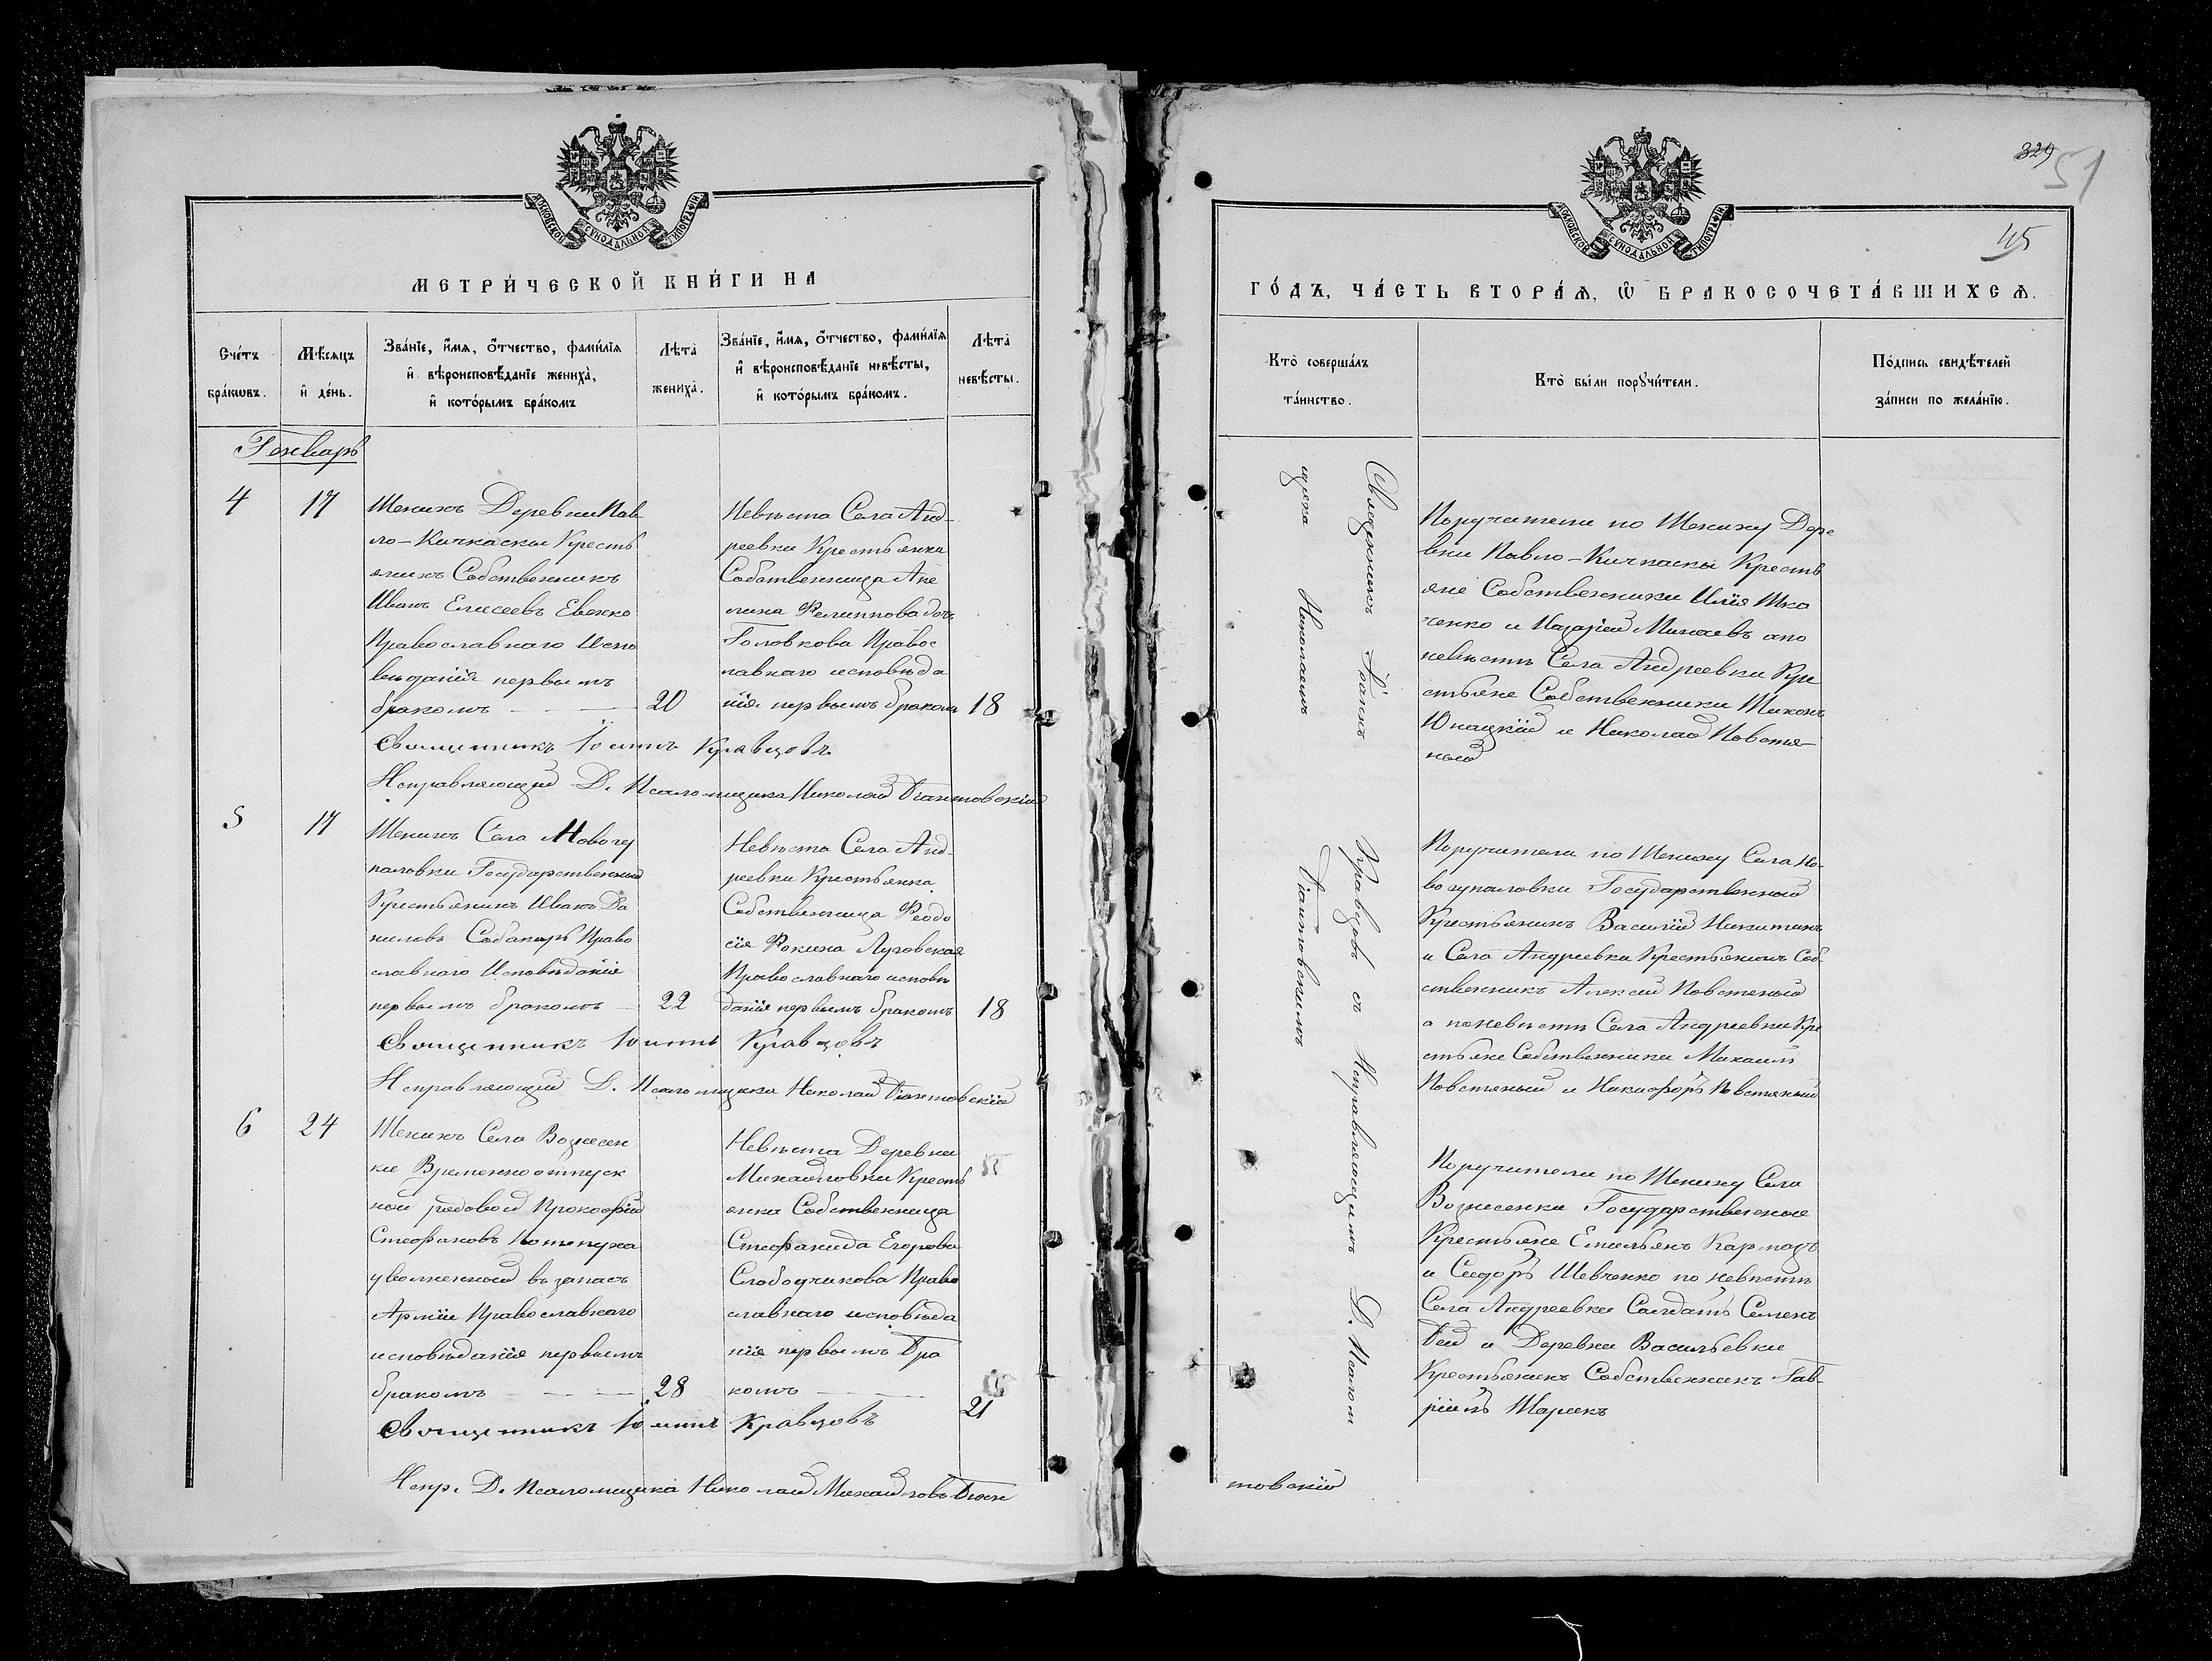 МОСКОВСКОЙ СУНОДАЛЬНОЙ ТИПОГРАФІИ
МЕТРИ́ЧЕСКОЙ КНИ́ГИ НА
Сче́тъ бра́кѡвъ.
Мѣ́сяцъ и де́нь.
Зва́нїе, и́мя, о́тчество, фами́лїя и вѣроисповѣ́данїе жениха̀, и кото́рымъ бра́комъ
Лѣта̀ жениха̀.
Зва́нїе, и́мя, о́тчество, фами́лїя и вѣроисповѣ́данїе невѣ́сты, и кото́рымъ бра́комъ.
Лѣта̀ невѣ́сты.
Генварь
4
17
Женихъ Деревни Пав-
ло-Кичкаски Кресть
янинъ Собственникъ
Иванъ Елисеевъ Евенко
Православнаго Испо
вѣданія первымъ
бракомъ
20
Невѣста Села Анд-
реевки Крестьянка
Собственница Аке
лина Филиппова дочь
Головкова Правос
лавнаго исповѣда
нія первымъ бракомъ
18
Священникъ Іоаннъ Кравцовъ
Исправляющій Д. Псаломщика Николай Діантовскій
5
17
Женихъ Села Новогу
паловки Государственный
Крестьянинъ Иванъ Да
ниловъ Собакарь Право
славнаго Исповѣданія
первымъ бракомъ
22
Невѣста Села Анд-
реевки Крестьянка
Собственница Феодо
сія Фокина Луговская
Православнаго исповѣ
данія первымъ бракомъ
18
Священникъ Іоаннъ Кравцовъ
Исправляющій Д. Псаломщика Николай Діантовскій
6
24
Женихъ Села Вознесен
ки Временноотпуск
ной рядовой Прокофій
Стефановъ Потепуха
уволненный въ запасъ
Арміи Православнаго
исповѣданія первымъ
бракомъ
28
Невѣста Деревни
Михайловки Кресть
янка Собственница
Стефанида Егорова
Слободчикова Право
славнаго исповѣда
нія первымъ бра
комъ
21
Священникъ Іоаннъ Кравцовъ
Испр. Д. Псаломщика Николай Михайловъ Діан
329
51
45
МОСКОВСКОЙ СУНОДАЛЬНОЙ ТИПОГРАФІИ
ГО́ДЪ, ЧА́СТЬ ВТОРА́Я, Ѡ БРАКОСОЧЕТА́ВШИХСЯ.
Кто̀ соверша́лъ та́инство.
Кто̀ бы́ли порꙋчи́тели.
По́дпись свидѣ́телей за́писи по жела́нїю.
Священникъ Іоаннъ Кравцовъ съ Исправляющимъ Д. Псалом
щика Николаемъ Діантовскимъ
Поручители по Жениху Дере
вни Павло-Кичкаски Кресть
яне Собственники Илія Шка
ченко и Назарій Минаевъ апо
невѣстѣ Села Андреевки Кре
стьяне Собственники Тихонъ
Юнацкій и Николай Повстя-
ной
Поручители по Жениху Села Но-
вогупаловки Государственный
Крестьянинъ Василій Никитинъ
и Села Андреевки Крестьянинъ Соб-
ственникъ Алексій Повстяный
а поневѣстѣ Села Андреевки Кре
стьяне Собственники Михаилъ
Повстяный и Никифоръ Повстяный
Поручители по Жениху Села
Вознесенки Государственные
Крестьяне Емельянъ Кармазь
и Сидоръ Шевченко по невѣстѣ
Села Андреевки Салдатъ Семенъ
Бей и Деревни Васильевки
Крестьянинъ Собственникъ Гав-
ріилъ Шарикъ
товскій